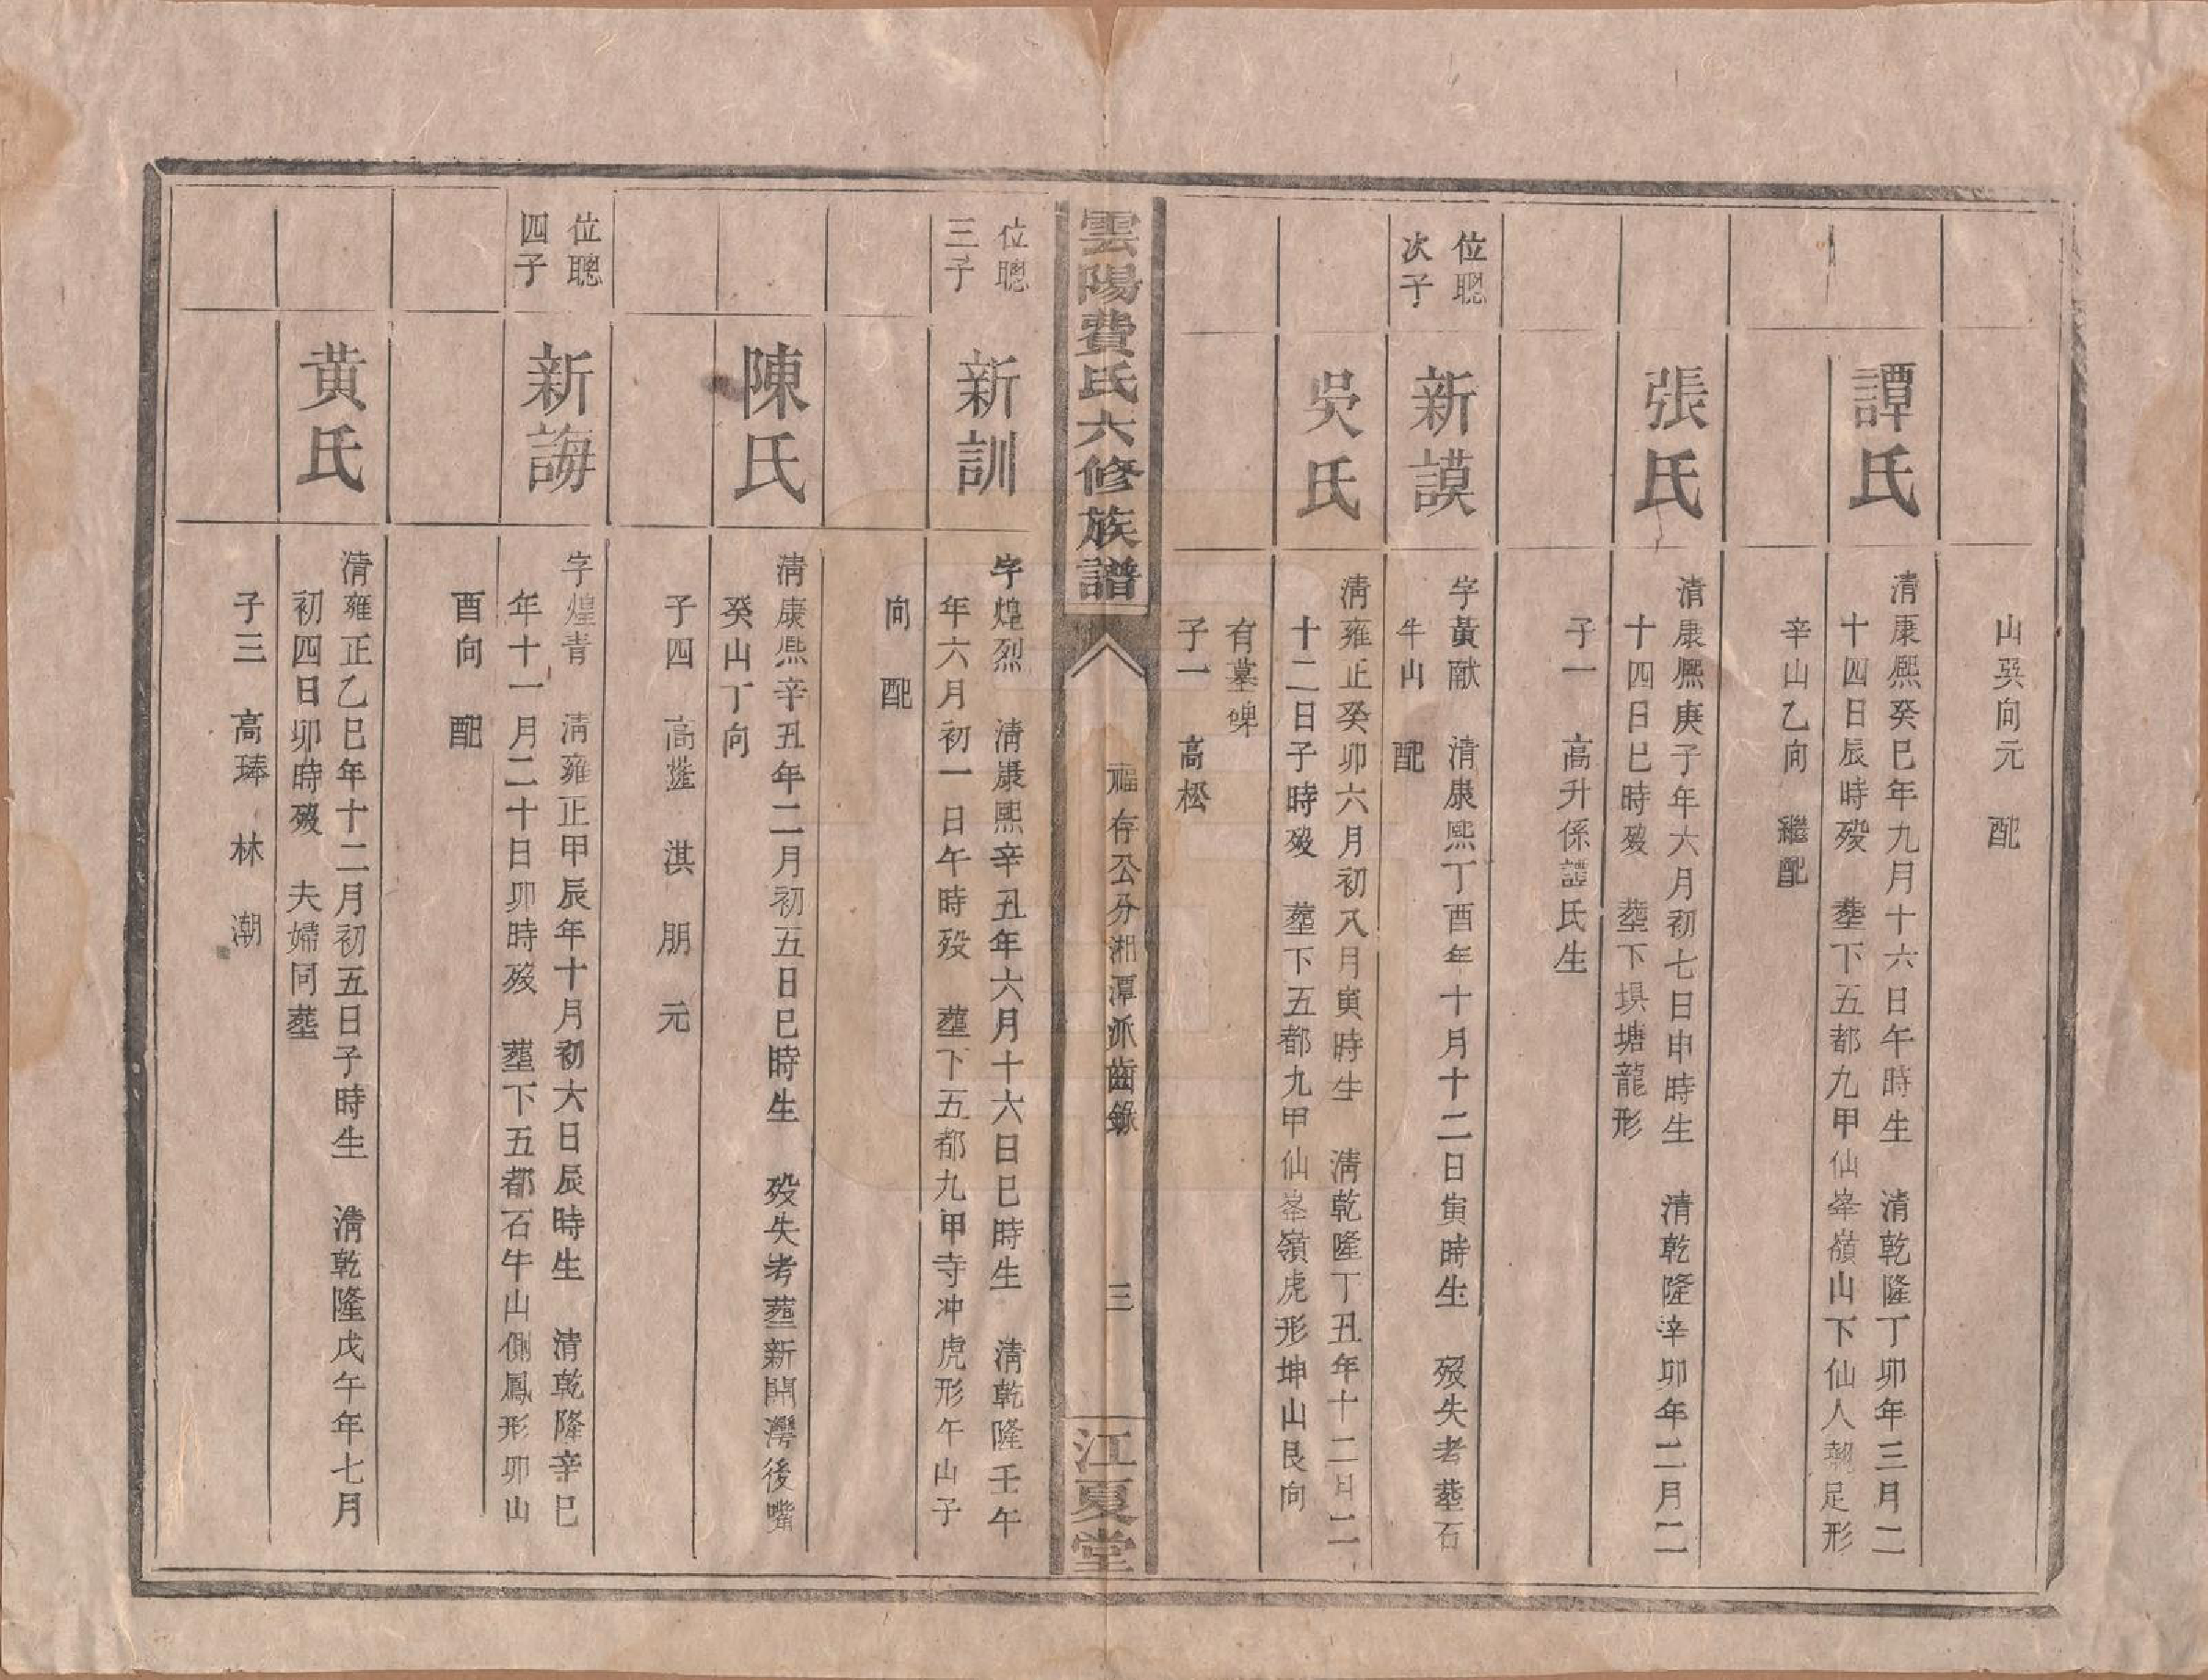 山癸向元　配
譚氏
清康熙癸巳年九月十六日午時生　清乾隆丁卯年三月二
十四日辰時歿　塟下五都九甲仙峯嶺山下仙人蹺足形
辛山乙向　繼配
張氏
清康熙庚子年六月初七日申時生　清乾隆辛卯年二月二
十四日巳時歿　塟下垻塘龍形
子一　高升係譚氏生
位聰
次子
新謨
字黃猷　清康熙丁酉年十月十二日寅時生　歿失考塟石
牛山　配
吳氏
清雍正癸卯六月初八月寅時生　清乾隆丁丑年十二月二
十二日子時歿　塟下五都九甲仙峯嶺虎形坤山艮向
有墓碑
子一　高松
雲陽費氏六修族譜
福存公分湘潭派齒錄
三
江夏堂
位聰
三子
新訓
字煌烈　清康熙辛丑年六月十六日巳時生　清乾隆壬午
年六月初一日午時歿　塟下五都九甲寺冲虎形午山子
向　配
陳氏
清康熙辛丑年二月初五日巳時生　歿失考塟新開灣後嘴
癸山丁向
子四　高蓬　淇　朋　元
位聰
四子
新誨
字煌青　清雍正甲辰年十月初六日辰時生　清乾隆辛巳
年十一月二十日卯時歿　塟下五都石牛山側鳳形卯山
酉向　配
黃氏
清雍正乙巳年十二月初五日子時生　清乾隆戊午年七月
初四日卯時歿　夫婦同塟
子三　高琫　林　潮